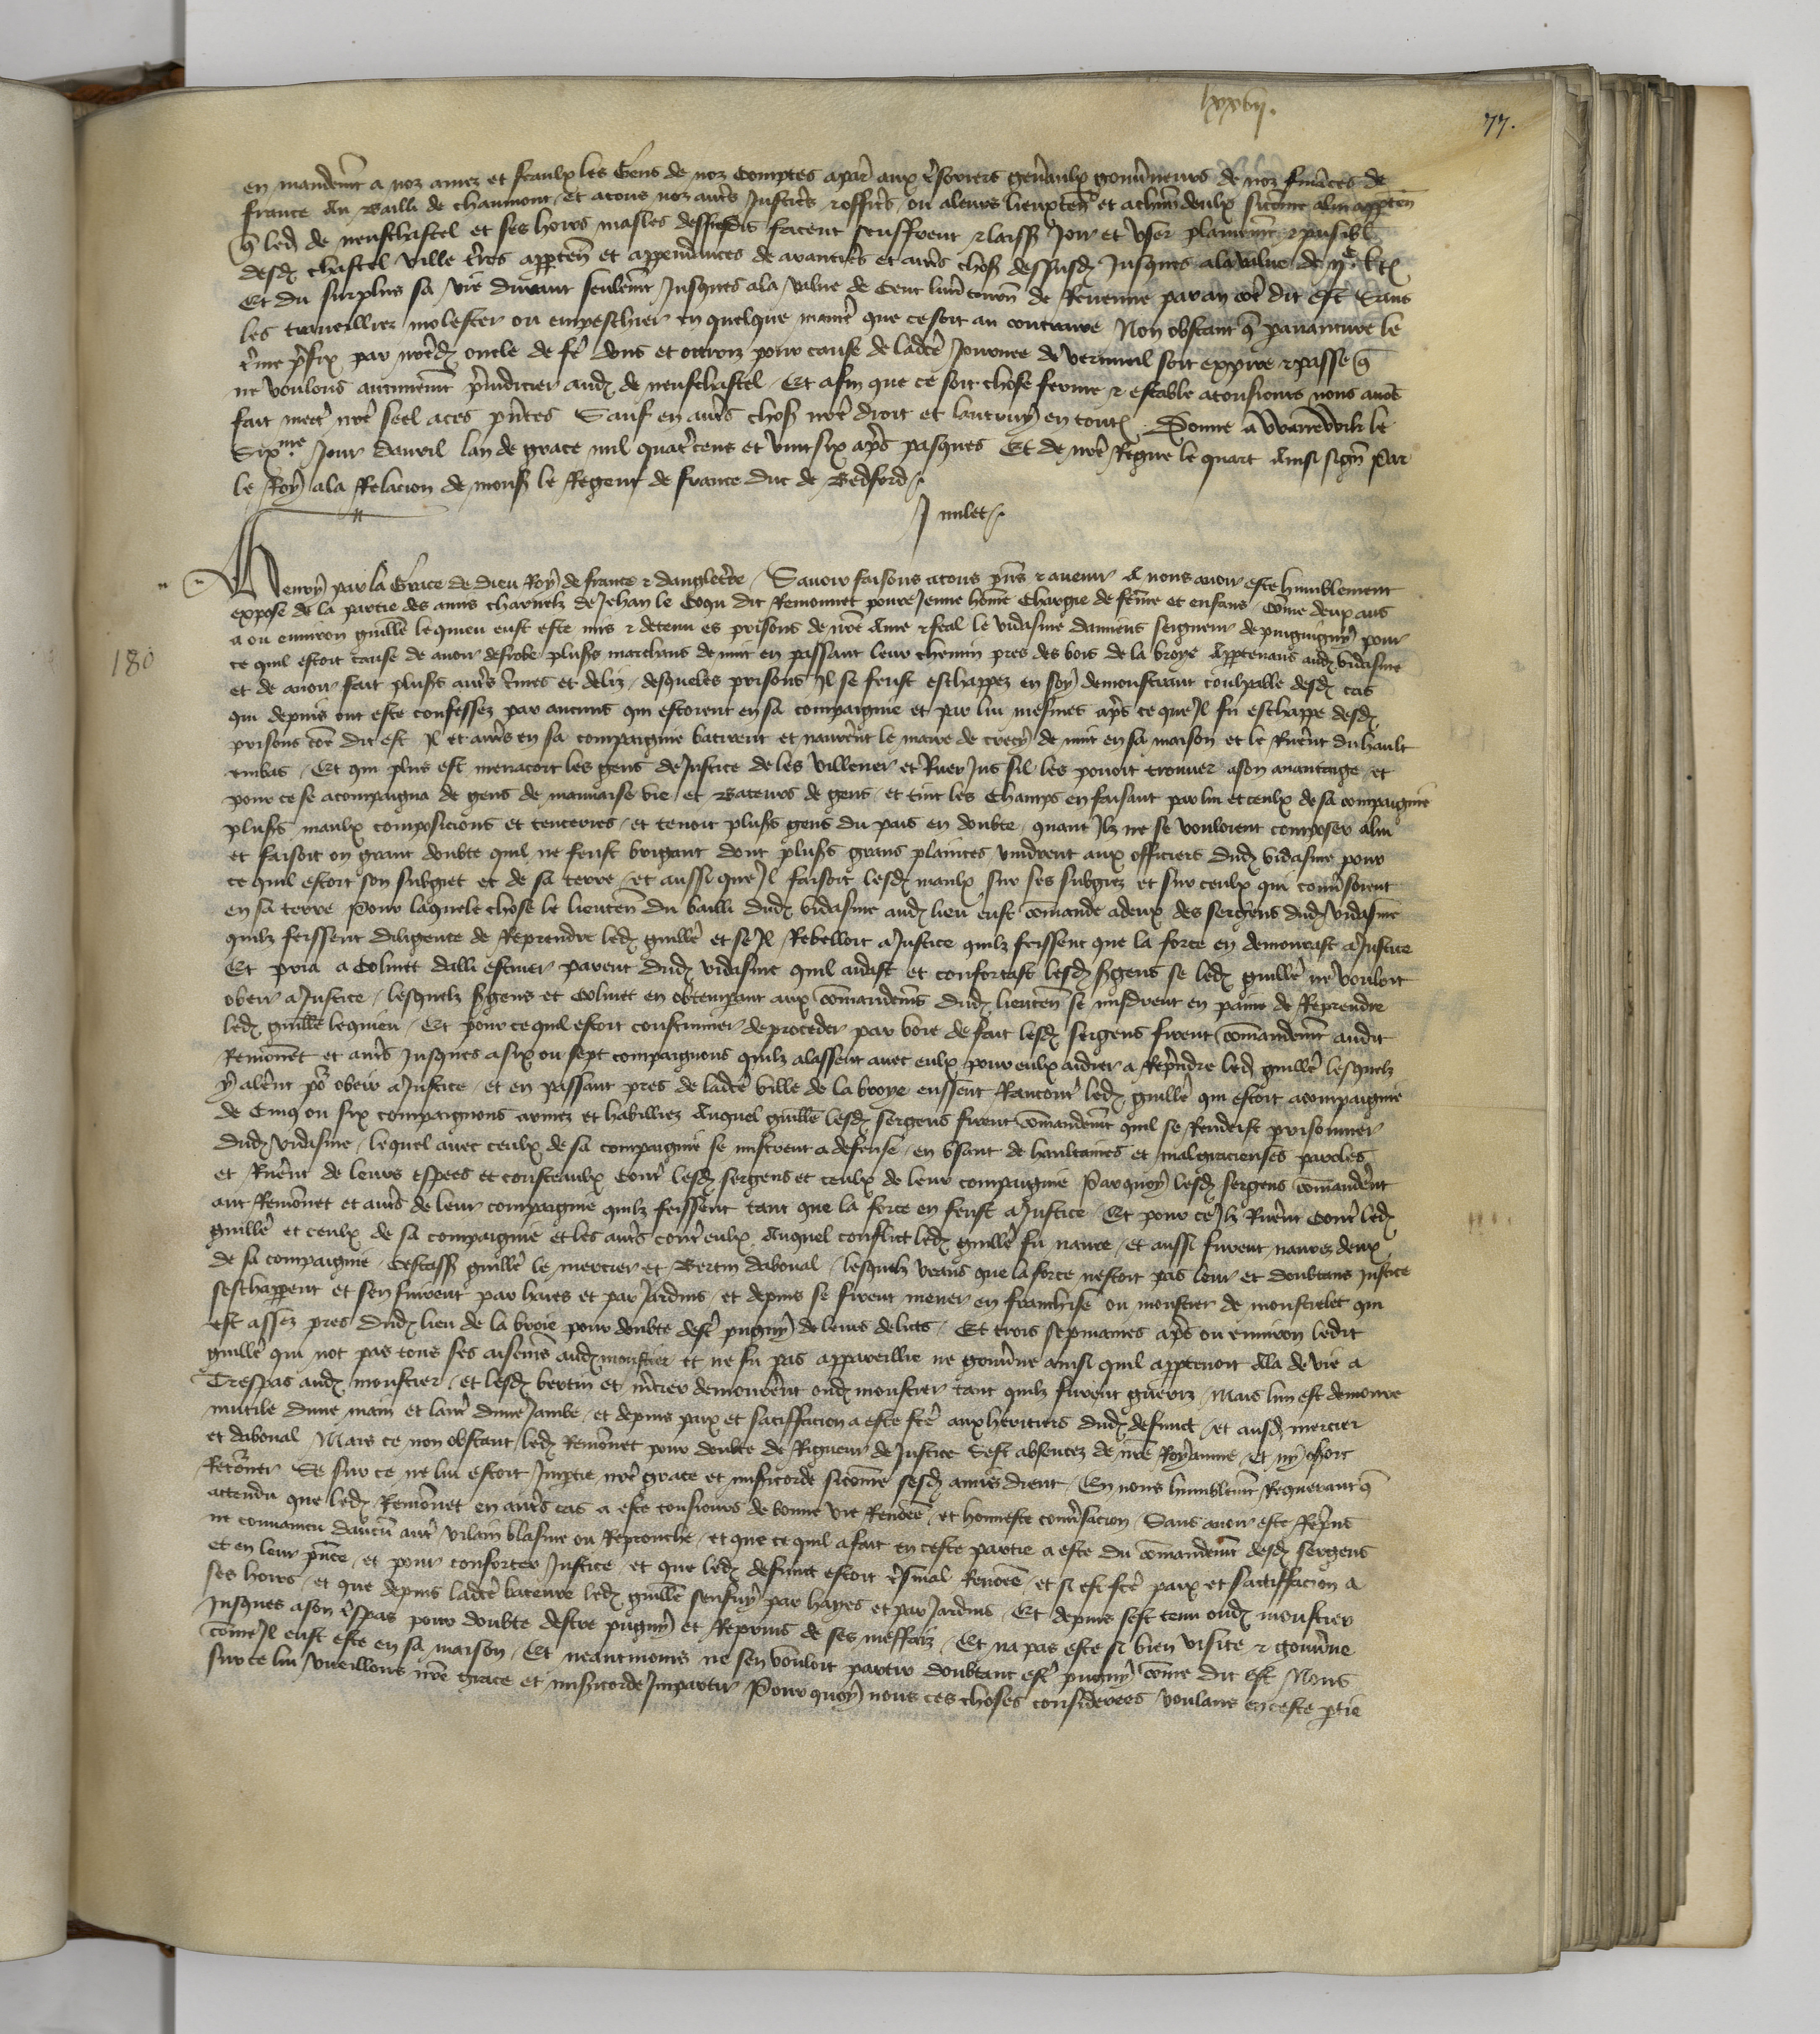 lxxvij.
77.
en mandemt a noz amez et feaulx les Gens de noz Comptes a par aux tsoriers genaulx gouvneurs de noz finaces de
france Au Bailli de chaumont et a tous noz autrs Justicrs & officrs ou a leurs lieuxten et a chun deulx sicome a lui appten
q led de neufchastel et ses hoirs masles dessusdis facent seuffrent & laissent Joir et User plainemt & paisibl
desd chastel ville tres apparten et appendances de avantrs et autrs chos dessusd Jusques a la value de
Et du surplus sa vie durant seulemt Jusques a la value de Cent livrs tourn de Revenue par an coe dit est Sans
les traveillier molester ou empeschier en quelque manie que ce soit au contraire Non obstant q paravanture le
tme pfix par nred oncle de fe dons et octroiz pour cause de ladce Journee de Verneuil soit expire & passe q
ne voulons aucunemt preiudicier aud de neufchastel Et afin que ce soit chose ferme & estable a tousiours nous avos
fait mectr nre seel a ces pntes Sauf en autrs chos nre droit et lautruy en toutes Donne a Warrewik le
Sixme Jour davril lan de grace mil quatrcens et vint six aps pasques Et de nre Regne le quart Ainsi sign Par
le Roy a la Relacion de mons le Regent de france duc de Bedford
J milet
Henry par la Grace de Dieu Roy de france & dangletrre Savoir faisons a tous pns & avenir A nous avoir este humblement
expose de la partie des amis charnelz de Jehan le Coqu dit Remonnet povre Jeune home Chargie de feme et enfans Come deux ans
180
a ou environ guille lequieu eust este mis & detenu es prisons de nre Ame & feal le vidasme damiens seigneur de piquigny pour
ce quil estoit cause de avoir desrobe plusrs marchans de nuit en passant leur chemin pres des bois de la broye Apptenans aud vidasme
et de avoir fait plusrs autrs crimes et deliz desqueles prisons Il se feust eschappez en soy demonstrant coulpable desd cas
qui depuis ont este confessez par aucuns qui estoient en sa compaignie et par lui mesmes aps ce que Il fu eschappe desd
prisons coe dit est Il et autrs en sa compaignie batirent et navrent le maire de crecy de nuit en sa maison et le Ruerent du hault
embas Et qui plus est menacoit les gens de Justice de les villener et Ruer Jus sil les povoit trouver a son avantaige et
pour ce se acompaigna de gens de mauvaise vie et Bateurs de gens et tint les Champs en faisant par lui et ceulx de sa compaignie
plusrs maulx composicions et tenceries et tenoit plusrs gens du pais en doubte quant Ilz ne se vouloient composer a lui
et faisoit on grant doubte quil ne feust brigant dont plusrs grans plaintes vindrent aux officiers dud vidasme pour
ce quil estoit son subgiet et de sa terre et aussi que Il faisoit lesd maulx sur ses subgiez et sur ceulx qui convsoient
en sa terre Pour laquele chose le lieuten du bailli dud vidasme aud lieu eust comande a deux des sergens dud vidasme
quilz feissent diligence de Reprendre led guille et se Il Rebelloit a Justice quilz feissent que la force en demourast a Justice
Et pria a Colinet dalli escuier parent dud vidasme quil aidast et confortast lesd sgens se led guille ne vouloit
obeir a Justice lesquelz sgens et Colinet en obtempant aux comandems dud lieuten se misdrent en paine de Reprendre
led guille lequieu Et pour ce quil estoit coustumier de proceder par voie de fait lesd sergens firent comandemt audit
Remonet et autrs Jusques a six ou sept compaignons quilz alassent avec eulx pour eulx aidier a Reprendre led guille lesquelz
y alerent por obeir a Justice et en passant pres de ladce ville de la broye eussent Rancontr led guille qui estoit acompaigne
de Cinq ou six compaignons armez et habilliez Auquel guille lesd sergens firent comandemt quil se Rendeist prisonnier
dud vidasme lequel avec ceulx de sa compaignie se mistrent a defense en usant de haultaines et malgracieuses paroles
et Ruerent de leurs espees et cousteaulx contr lesd sergens et ceulx de leur compaignie Par quoy lesd sergens comanderent
aut Remonet et autrs de leur compaignie quilz feissent tant que la force en feust a Justice Et pour ce Ilz Ruerent contr led
guille et ceulx de sa compaignie et les autrs contr eulx Auquel conflict led guille fu navre et aussi furent navrez deux
de sa compaignie Cestass guille le mercier et Bertin daboval lesquelz veans que la force nestoit pas leur et doubtans Justice
seschapperent et senfuirent par haies et par Jardins et depuis se firent mener en franchise ou monstier de monstrelet qui
est assez pres dud lieu de la broie pour doubte destr pugny de leurs delicts Et trois sepmaines aps ou environ ledit
guille qui not pas tous ses aisems aud monstier et ne fu pas appareillie ne gouvne ainsi quil apptenoit Ala de vie a
Trespas aud monstier et lesd bertin et mcier demourerent oud monstier tant quilz furent gueriz Mais lun est demoure
mutile dune main et lautr dune Jambe et depuis paix et satiffacion a este fce aux heritiers dud defunct et ausd mercier
et daboval Mais ce non obstant led Remonet pour doubte de Rigueur de Justice Sest absentez de nre Royaume et ny oseroit
Retorner Se sur ce ne lui estoit Imptie nre grace et misicorde sicomme sesd amis dient En nous humblemt Requerant q
attendu que led Remonet en autrs cas a este tousiours de bonne vie Renomee et honneste convsacion Sans avoir este Reprins
ne convaincu daucun autr vilain blasme ou Reprouche et que ce quil a fait en ceste partie a este du comandemt desd sergens
et en leur pnce et pour conforter Justice et que led defunct estoit tsmal Renome et si est fce paix et satiffacion a
ses hoirs et que depuis ladce bateure led guille senfuy par hayes et par Jardins Et depuis sest tenu oud monstier
Jusques a son tspas pour doubte destre pugny et Reprins de ses meffaiz Et na pas este si bien visite & gouvne
come Il eust este en sa maison Et neantmoins ne sen vouloit partir doubtant estr pugny come dit est Nous
sur ce lui vueillons nre grace et misicorde Impartir Pour quoy nous ces choses considerees voulans en ceste ptie